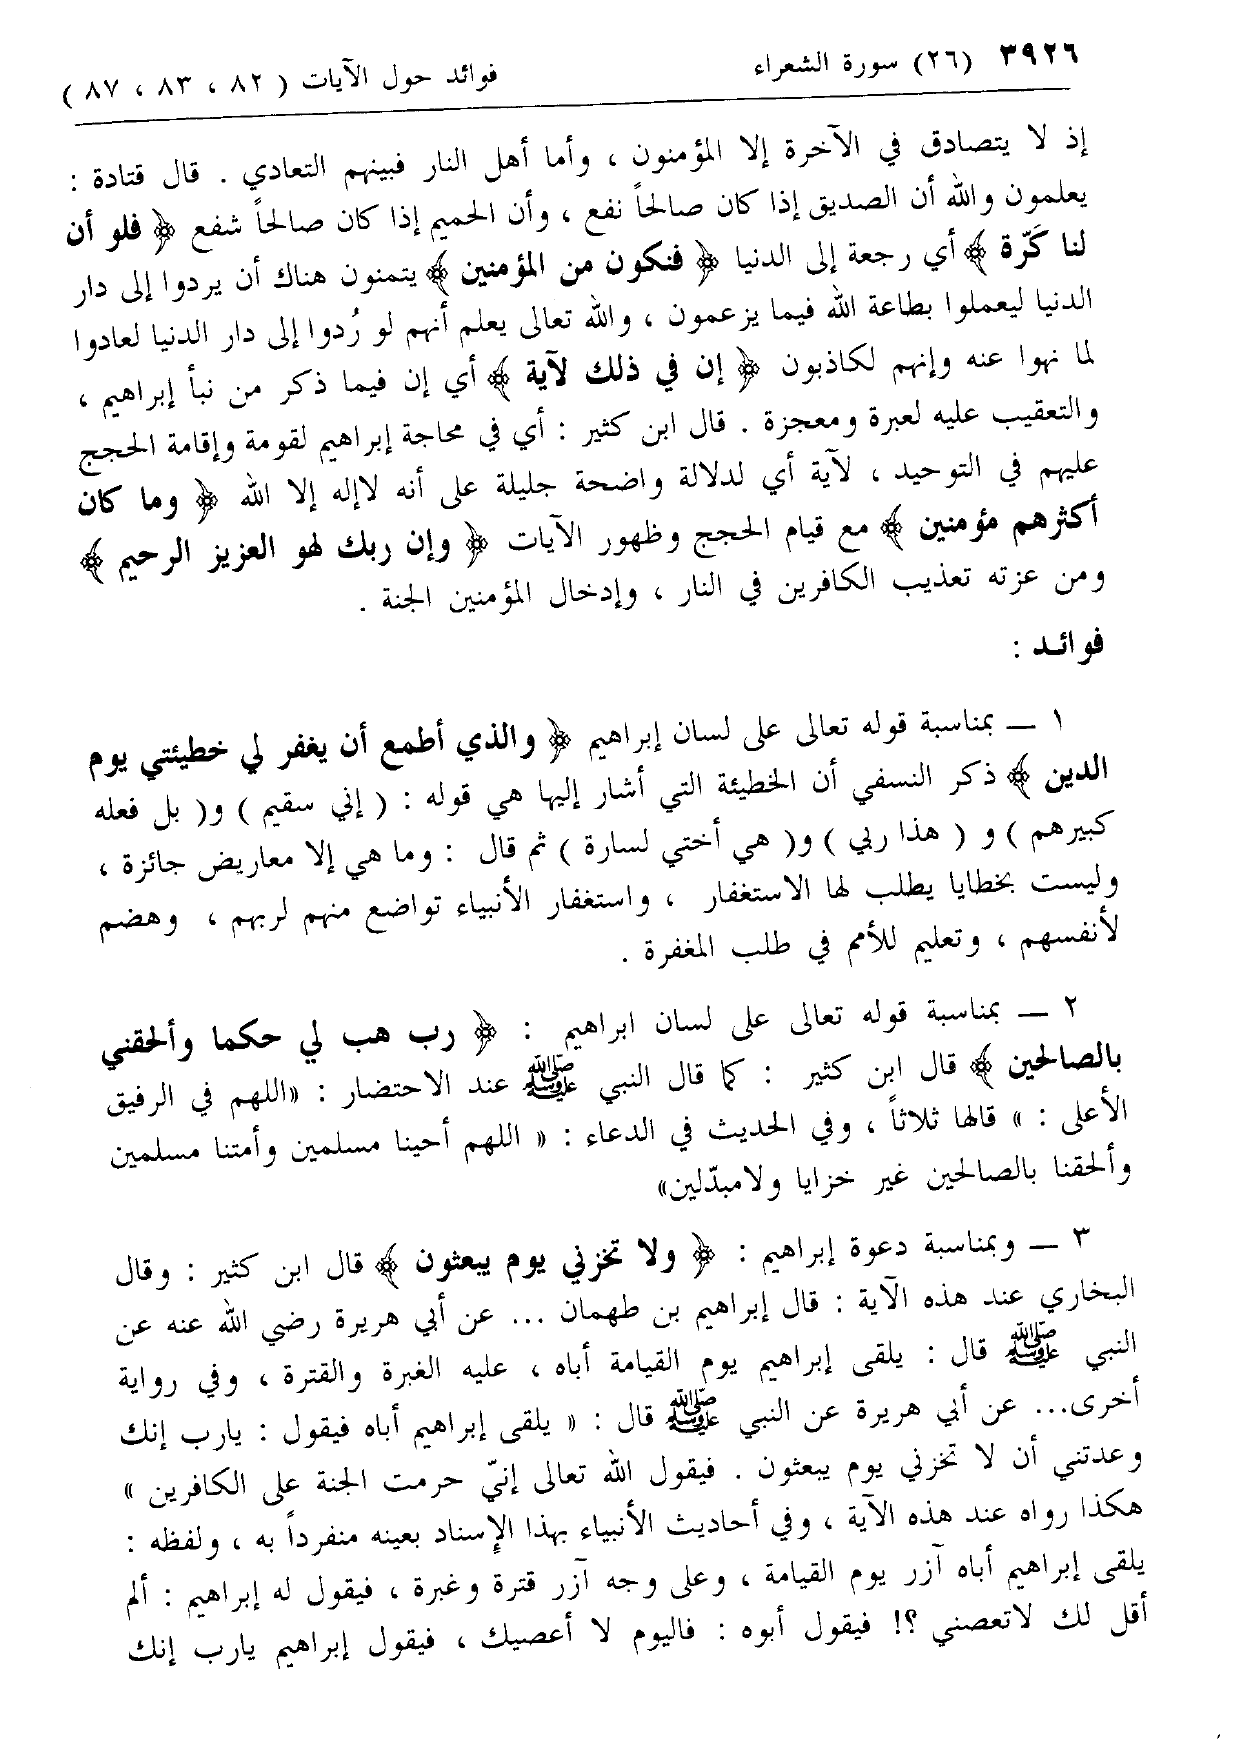 ٣٩٢٦ (٢٦) سورة الشعراء فوائد حول الآيات ( ٨٢ ، ٨٣ ، ٨٧ )
إذ لا يتصادق في الآخرة إلا المؤمنون ، وأما أهل النار فبينهم التعادي . قال قتادة :
يعلمون والله أن الصديق إذا كان صالحاً نفع ، وأن الحميم إذا كان صالحاً شفع ﴿ فلو أن
لنا كَرّة ﴾ أي رجعة إلى الدنيا ﴿ فنكون من المؤمنين ﴾ يتمنون هناك أن يردوا إلى دار
الدنيا ليعملوا بطاعة الله فيما يزعمون ، والله تعالى يعلم أنهم لو رُدوا إلى دار الدنيا لعادوا
لما نهوا عنه وإنهم لكاذبون ﴿ إن في ذلك لآية ﴾ أي إن فيما ذكر من نبأ إبراهيم ،
والتعقيب عليه لعبرة ومعجزة . قال ابن كثير : أي في محاجة إبراهيم لقومة وإقامة الحجج
عليهم في التوحيد ، لآية أي لدلالة واضحة جليلة على أنه لاإله إلا الله ﴿ وما كان
أكثرهم مؤمنين ﴾ مع قيام الحجج وظهور الآيات ﴿ وإن ربك لهو العزيز الرحيم ﴾
ومن عزته تعذيب الكافرين في النار ، وإدخال المؤمنين الجنة .
فوائـد :
١ ــ بمناسبة قوله تعالى على لسان إبراهيم ﴿ والذي أطمع أن يغفر لي خطيئتي يوم
الدين ﴾ ذكر النسفي أن الخطيئة التي أشار إليها هي قوله : ( إني سقيم ) و( بل فعله
كبيرهم ) و ( هذا ربي ) و( هي أختي لسارة ) ثم قال : وما هي إلا معاريض جائزة ،
وليست بخطايا يطلب لها الاستغفار ، واستغفار الأنبياء تواضع منهم لربهم ، وهضم
لأنفسهم ، وتعليم للأمم في طلب المغفرة .
٢ ــ بمناسبة قوله تعالى على لسان ابراهيم : ﴿ رب هب لي حكما وألحقني
بالصالحين ﴾ قال ابن كثير : كما قال النبي ﷺ عند الاحتضار : «اللهم في الرفيق
الأعلى : » قالها ثلاثاً ، وفي الحديث في الدعاء : « اللهم أحينا مسلمين وأمتنا مسلمين
وألحقنا بالصالحين غير خزايا ولامبدّلين»
٣ ــ وبمناسبة دعوة إبراهيم : ﴿ ولا تخزني يوم يبعثون ﴾ قال ابن كثير : وقال
البخاري عند هذه الآية : قال إبراهيم بن طهمان ... عن أبي هريرة رضي الله عنه عن
النبي ﷺ قال : يلقى إبراهيم يوم القيامة أباه ، عليه الغبرة والقترة ، وفي رواية
أخرى... عن أبي هريرة عن النبي ﷺ قال : « يلقى إبراهيم أباه فيقول : يارب إنك
وعدتني أن لا تخزني يوم يبعثون . فيقول الله تعالى إنيّ حرمت الجنة على الكافرين »
هكذا رواه عند هذه الآية ، وفي أحاديث الأنبياء بهذا الإسناد بعينه منفرداً به ، ولفظه :
يلقى إبراهيم أباه آزر يوم القيامة ، وعلى وجه آزر قترة وغبرة ، فيقول له إبراهيم : ألم
أقل لك لاتعصني ؟! فيقول أبوه : فاليوم لا أعصيك ، فيقول إبراهيم يارب إنك